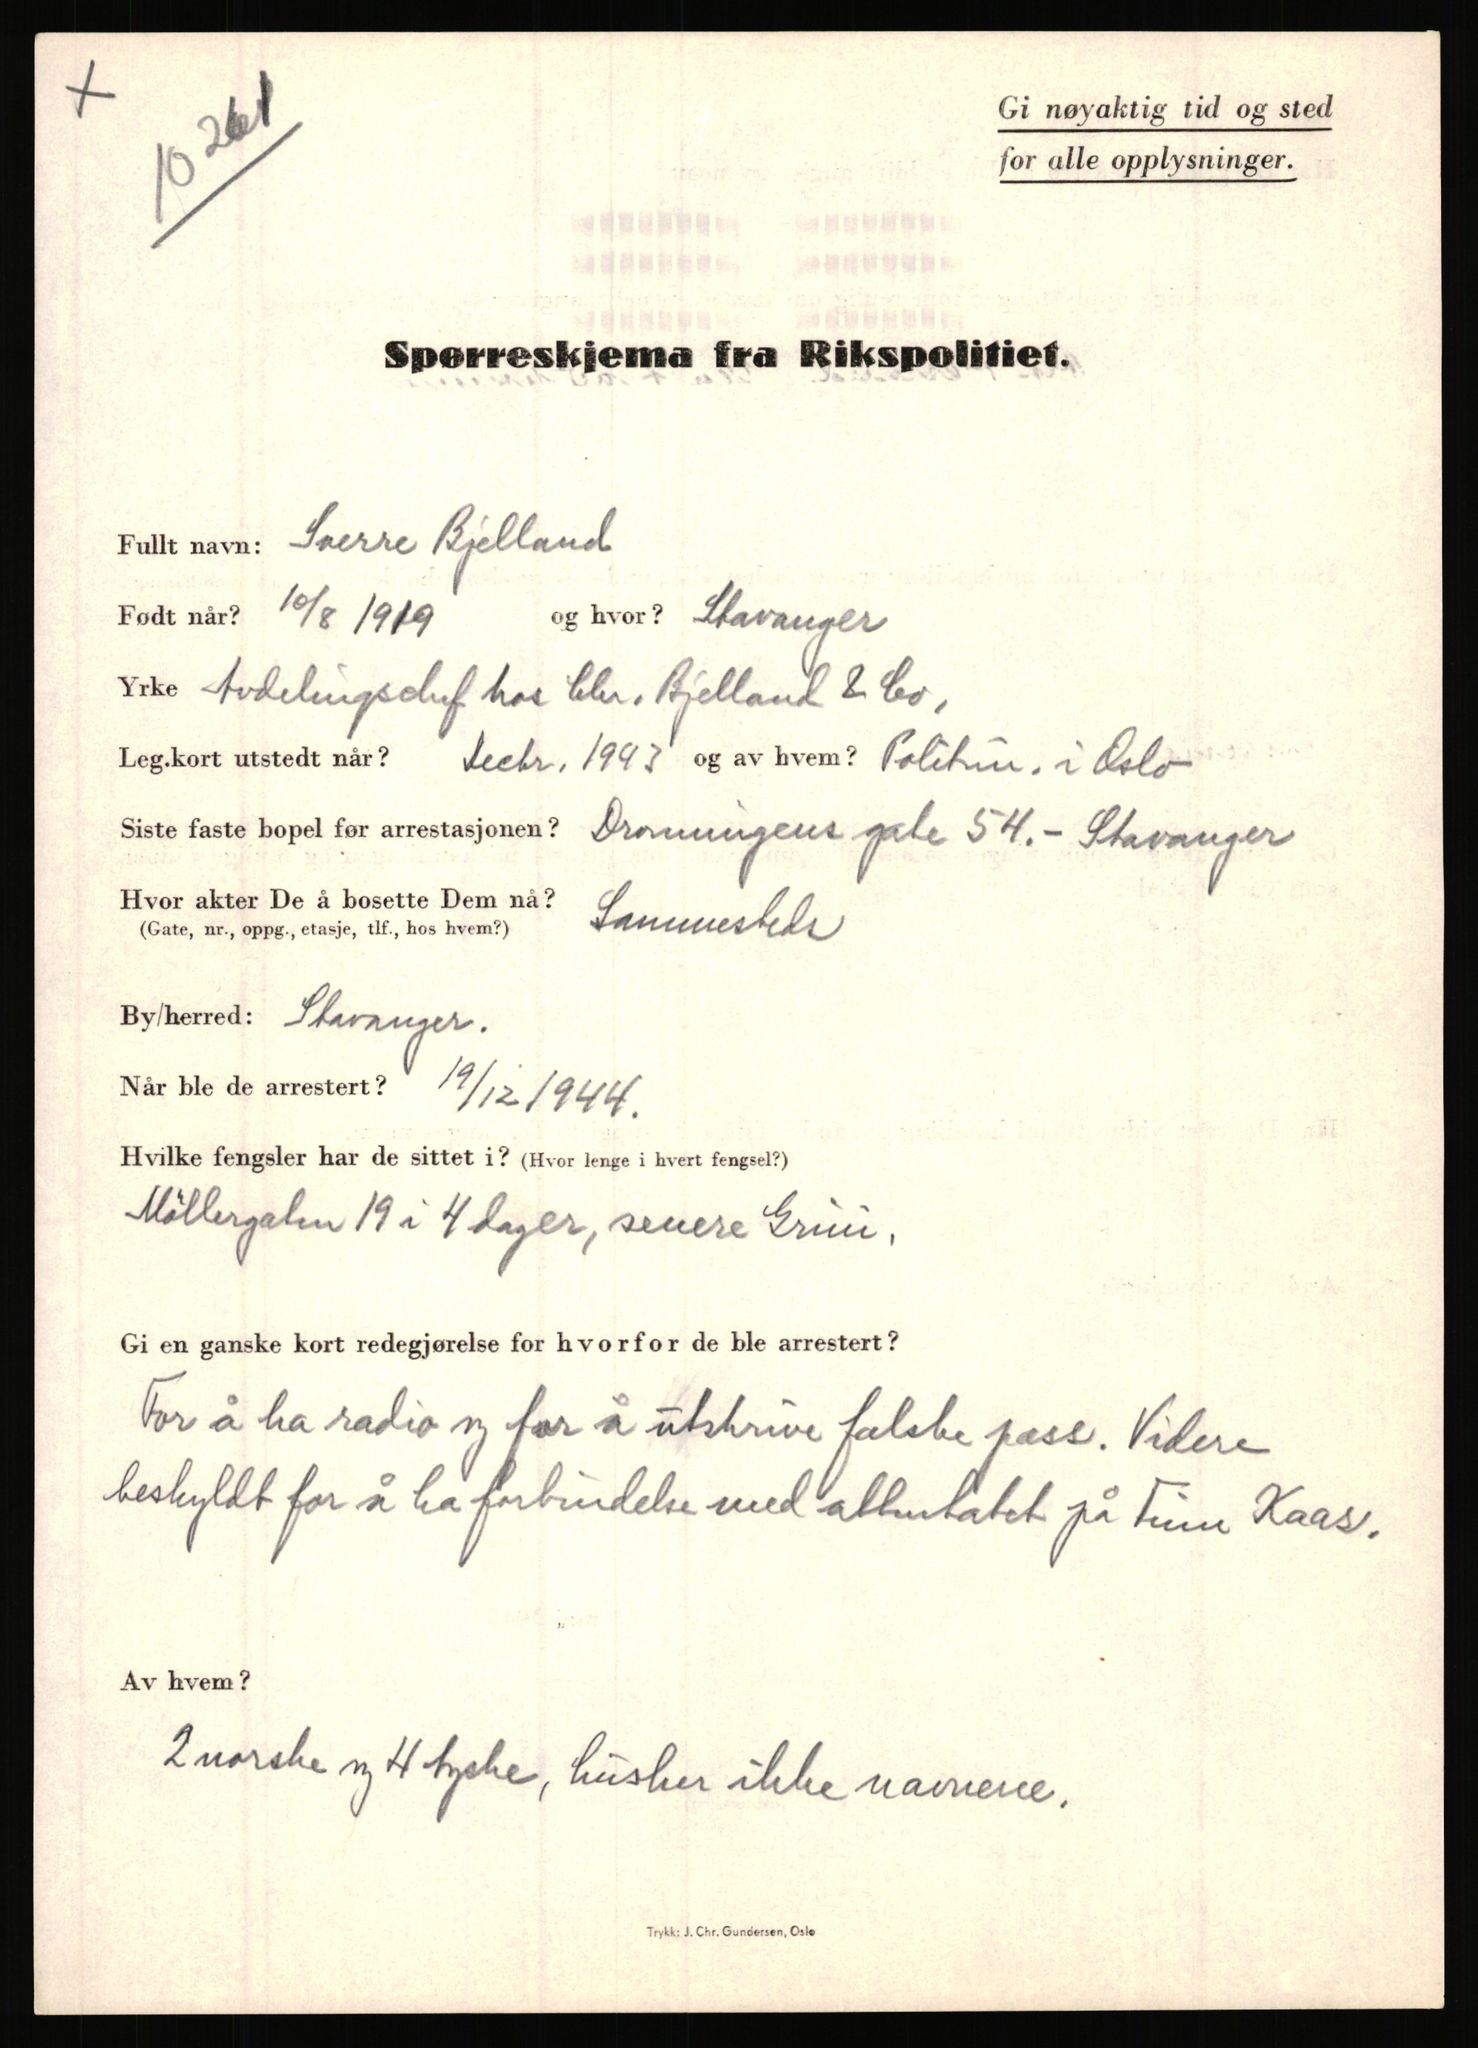 +
10261
Gi nøyaktig tid og sted
for alle opplysninger.
Spørreskjema fra Rikspolitiet.
Fullt navn: Sverre Bjelland
Født når? 10/8 1919 og hvor? Stavanger
Yrke Avdelingschef hos Chr. Bjelland & Co,
Leg.kort utstedt når? Decbr. 1943 og av hvem? Politiet i Oslo
Siste faste bopel før arrestasjonen? Dronningens gate 54.- Stavanger
Hvor akter De å bosette Dem nå? Sammesteds
(Gate, nr., oppg., etasje, tlf., hos hvem?)
By/herred: Stavanger.
Når ble de arrestert? 19/12 1944.
Hvilke fengsler har de sittet i? (Hvor lenge i hvert fengsel?)
Möllergaten 19 i 4 dager, senere Grini.
Gi en ganske kort redegjørelse for hvorfor de ble arrestert?
For å ha radio og for å utskrive falske pass. Videre
beskyldt for å ha forbindelse med attentatet på Finn Kaas.
Av hvem?
2 norske og 4 tyske, husker ikke navnene.
Trykk: J. Chr. Gundersen, Oslo